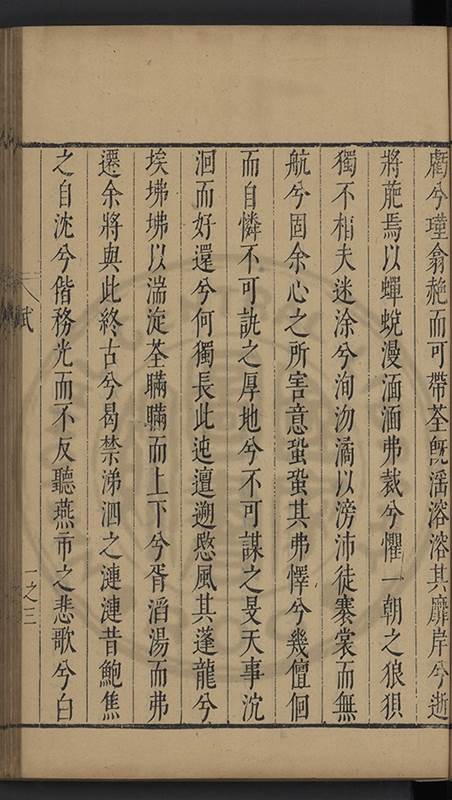 虧兮瓊翁赩而可帶荃旣滛溶溶其靡岸兮逝
將葩焉以蟬蛻漫湎湎弗裁兮懼一朝之狼狽
獨不相夫迷涂兮洵沕潏以滂沛徒褰裳而無
航兮固余心之所害意蛩蛩其弗懌兮幾儃佪
而自憐不可訧之厚地兮不可謀之旻天事沈
洄而好還兮何獨長此迍邅遡愍風其蓬龍兮
埃坲坲以湍淀荃瞞瞞而上下兮胥滔湯而弗
還余將與此終古兮曷禁涕泗之漣漣昔鮑焦
之自沈兮偕務光而不反聽燕市之悲歌兮白
賦
一之三